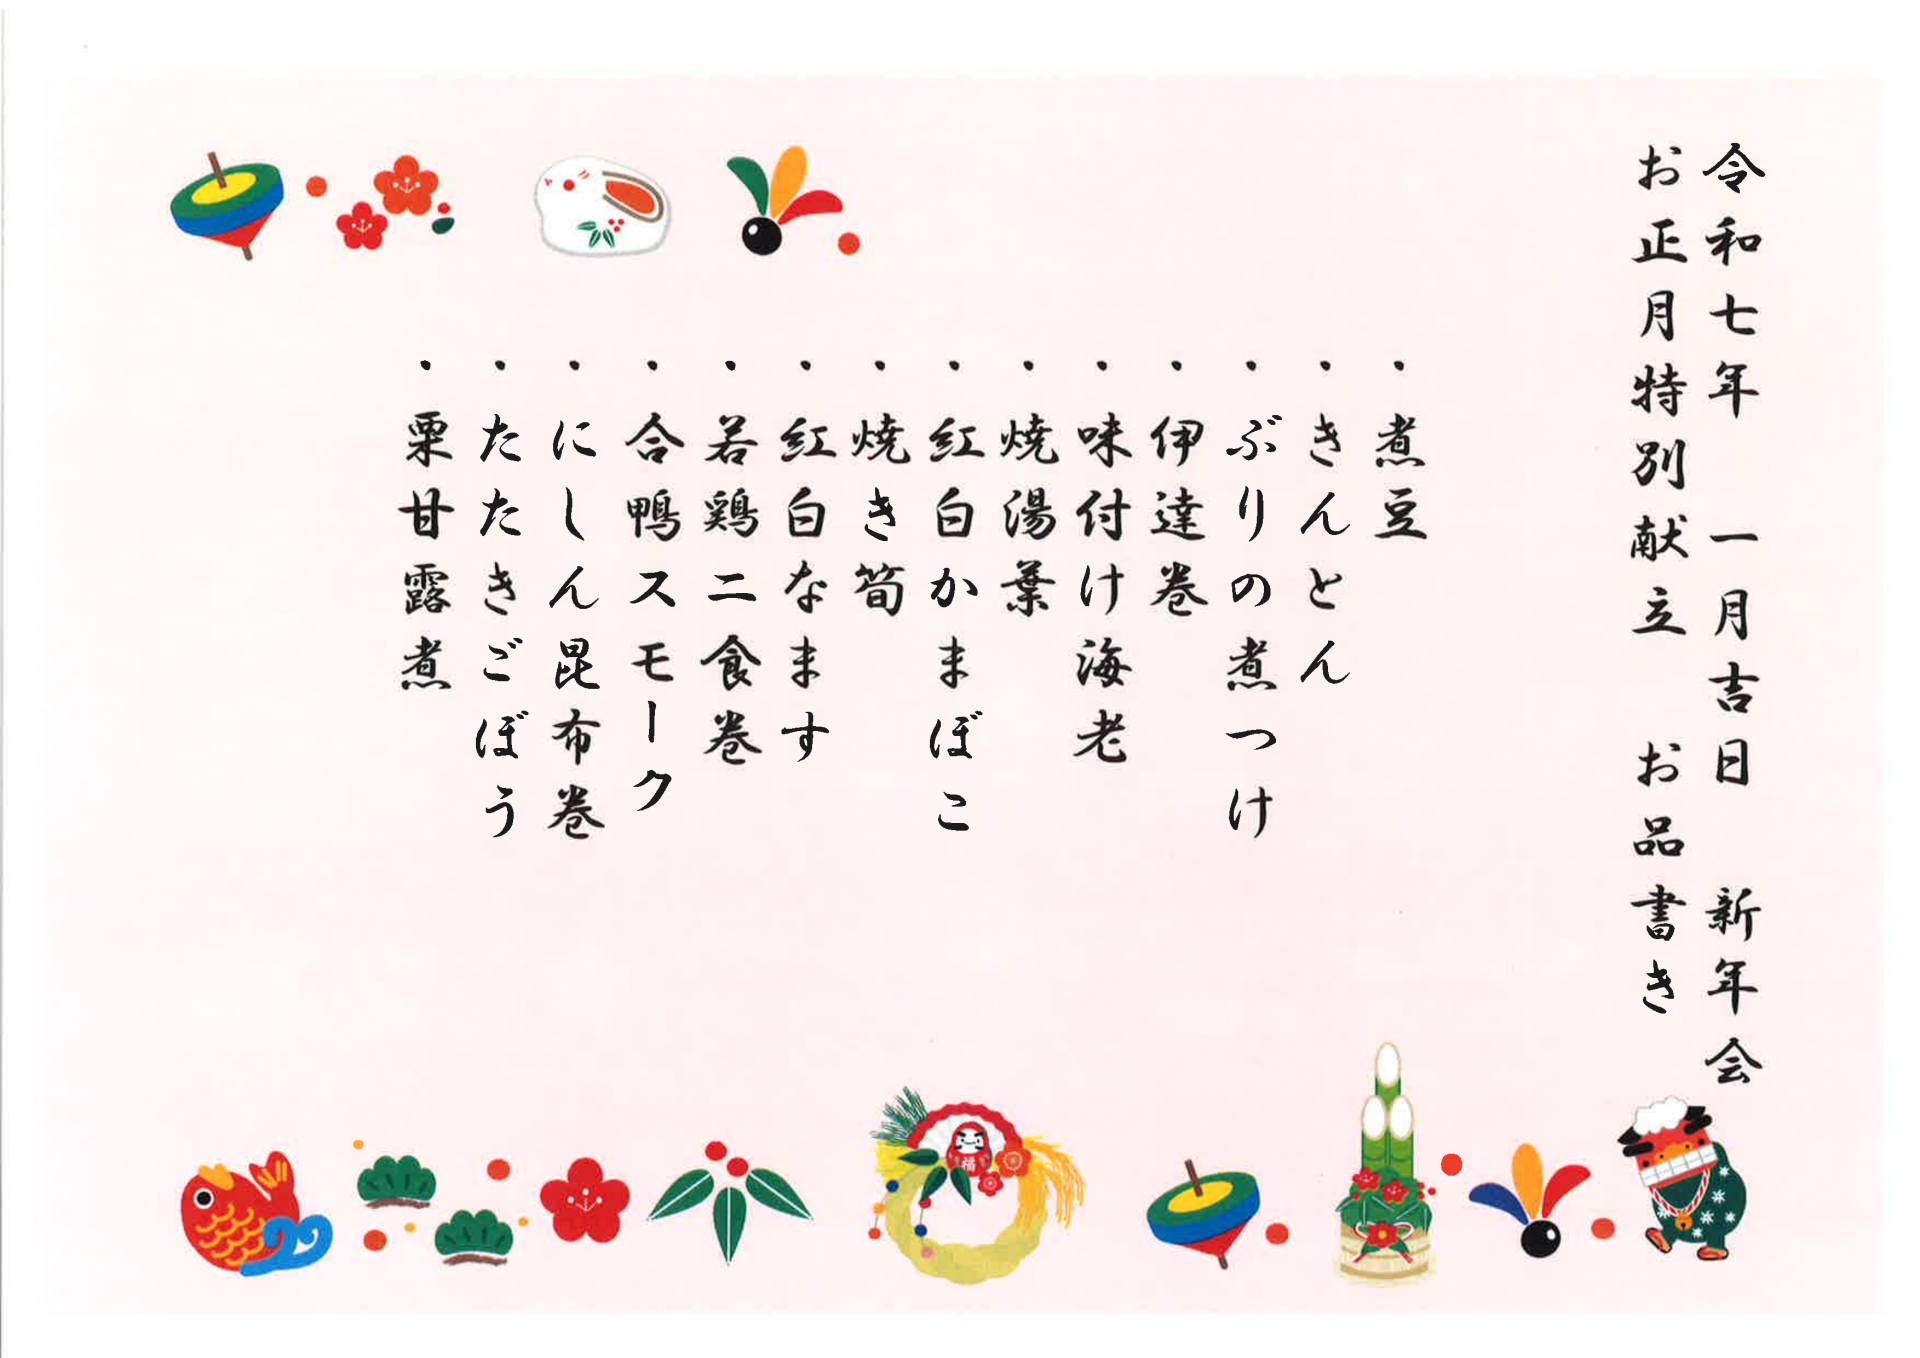 令和七年　一月吉日　新年会
お正月特別献立　お品書き
・煮豆
・きんとん
・ぶりの煮つけ
・伊達巻
・味付け海老
・焼湯葉
・紅白かまぼこ
・焼き筍
・紅白なます
・若鶏二食巻
・合鴨スモーク
・にしん昆布巻
・たたきごぼう
・栗甘露煮
福